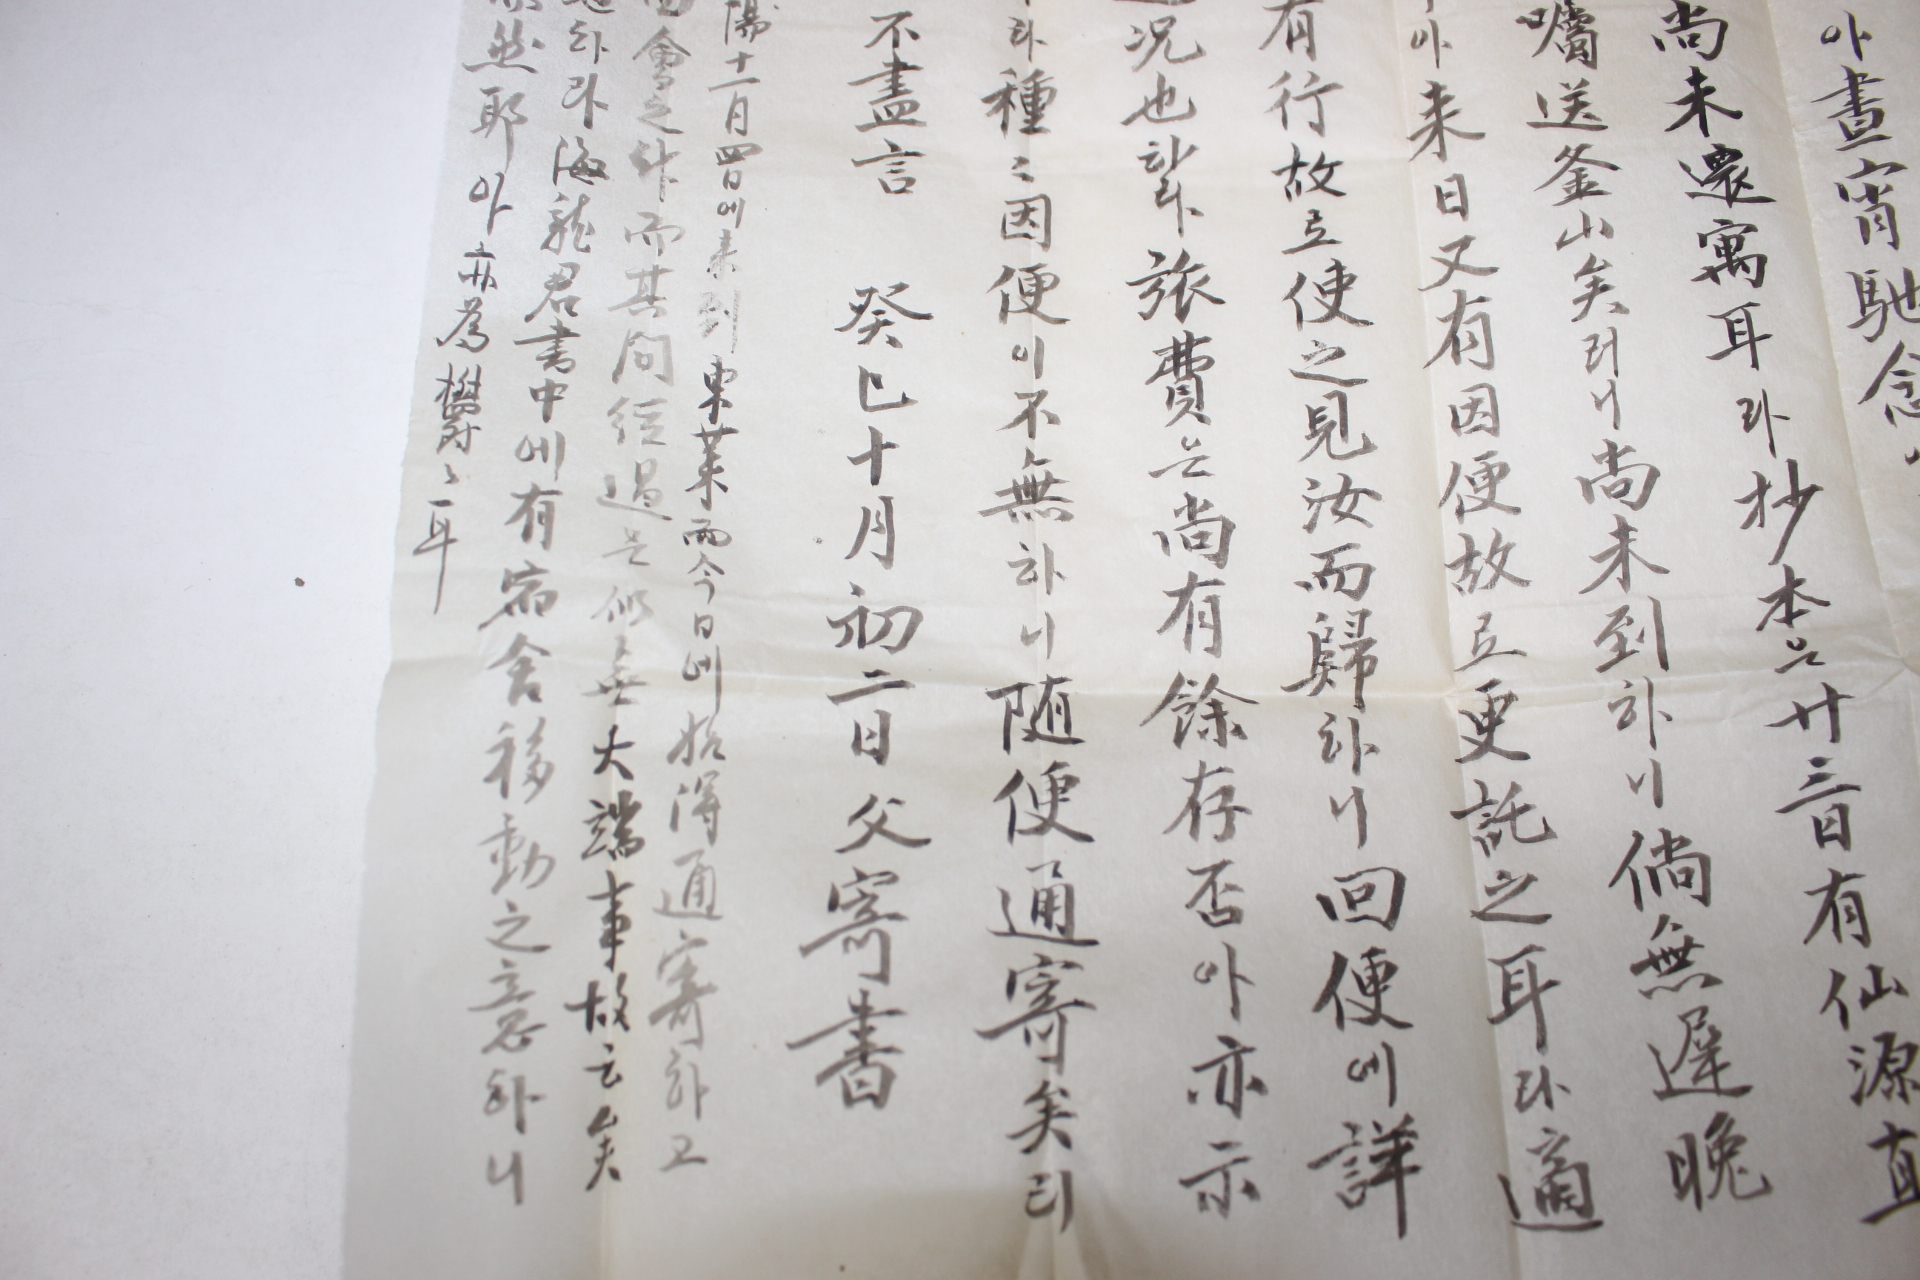 아晝宵馳念
尚未還寓耳라抄本은廿三日有仙源直
囑送釜山矣러니尚未到하니倘無遲晚
아来日又有因便故로更託之耳라適
有行故로使之見汝而歸하니回便에詳
况也하라旅費는尚有餘存否아亦示
라種〻因便이不無하니随便通寄矣리
不盡言 癸巳十月初二日父寄書
陽十一月四日에来到東萊而今日에始得通寄하고
會之라而其间經過은似無大端事故云矣
하라海龍君書中에有宿舍移動之意하니
然耶아亦為鬱〻耳